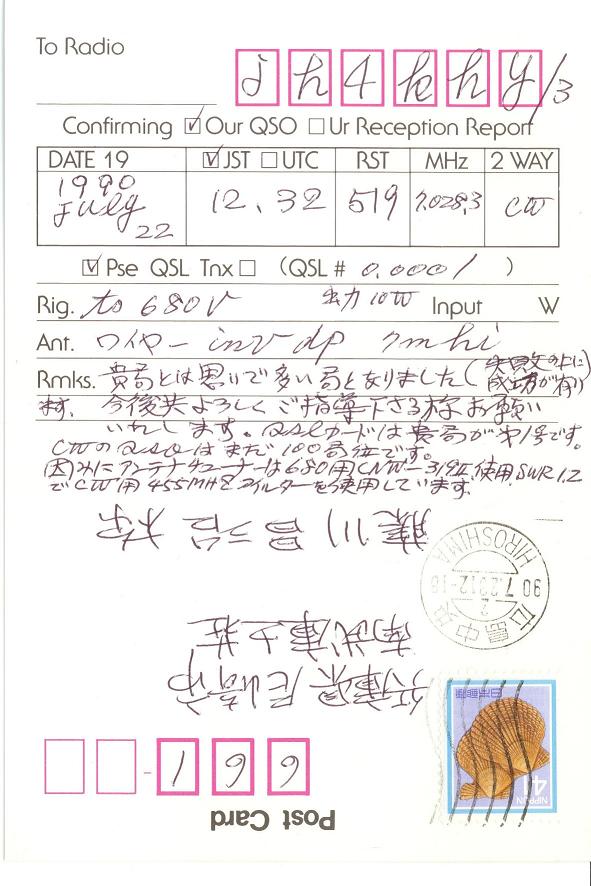 To Radio
jh4khy/3
Confirming ☑ Our QSO ☐ Ur Reception Report
DATE 19 ☑ JST ☐ UTC RST MHz 2 WAY
1990 July 22 12.32 519 7.028.3 CW
☑ Pse QSL Tnx ☐ (QSL # 0.0001 )
Rig. to 680V 出力 10W Input W
Ant. ワイヤー inv dp 7mhz
Rmks. 貴局とは思いで多い局となりました(失敗の上に成功が有り
ます. 今後共よろしくご指導下さる様お願い
いたします。QSLカードは貴局が才1号です。
CWのQSOはまだ100局位です。
因みにアンテナチューナーは680用CNW-319 使用 SWR 1.2
でCW用455MHzフィルターを使用しています.
昌治 様
HIROSHIMA
90.7.23 12-18
広島中央
南武庫之荘
兵庫県尼崎市
日本郵便
41
NIPPON
199
Post Card